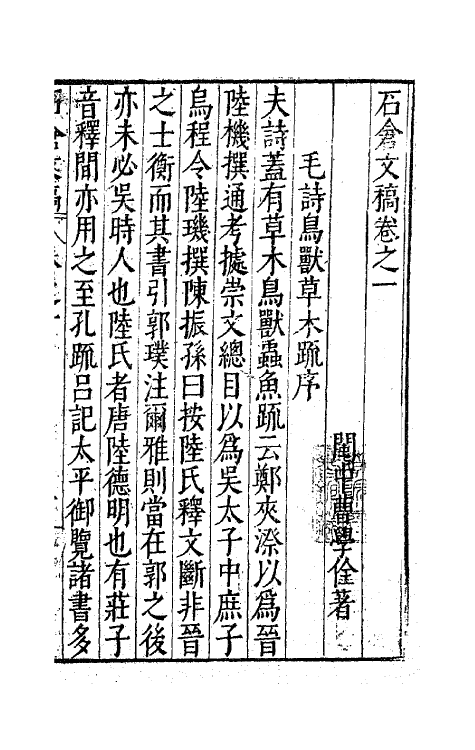 石倉文稿卷之一
閩中曹學佺著
毛詩鳥獸草木疏序
夫詩蓋有草木鳥獸蟲魚疏云鄭夾漈以爲晉
陸機撰通考據崇文總目以爲吳太子中庶子
烏程令陸璣撰陳振孫曰按陸氏釋文斷非晉
之士衡而其書引郭璞注爾雅則當在郭之後
亦未必吳時人也陸氏者唐陸德明也有莊子
音釋間亦用之至孔疏呂記太平御覽諸書多